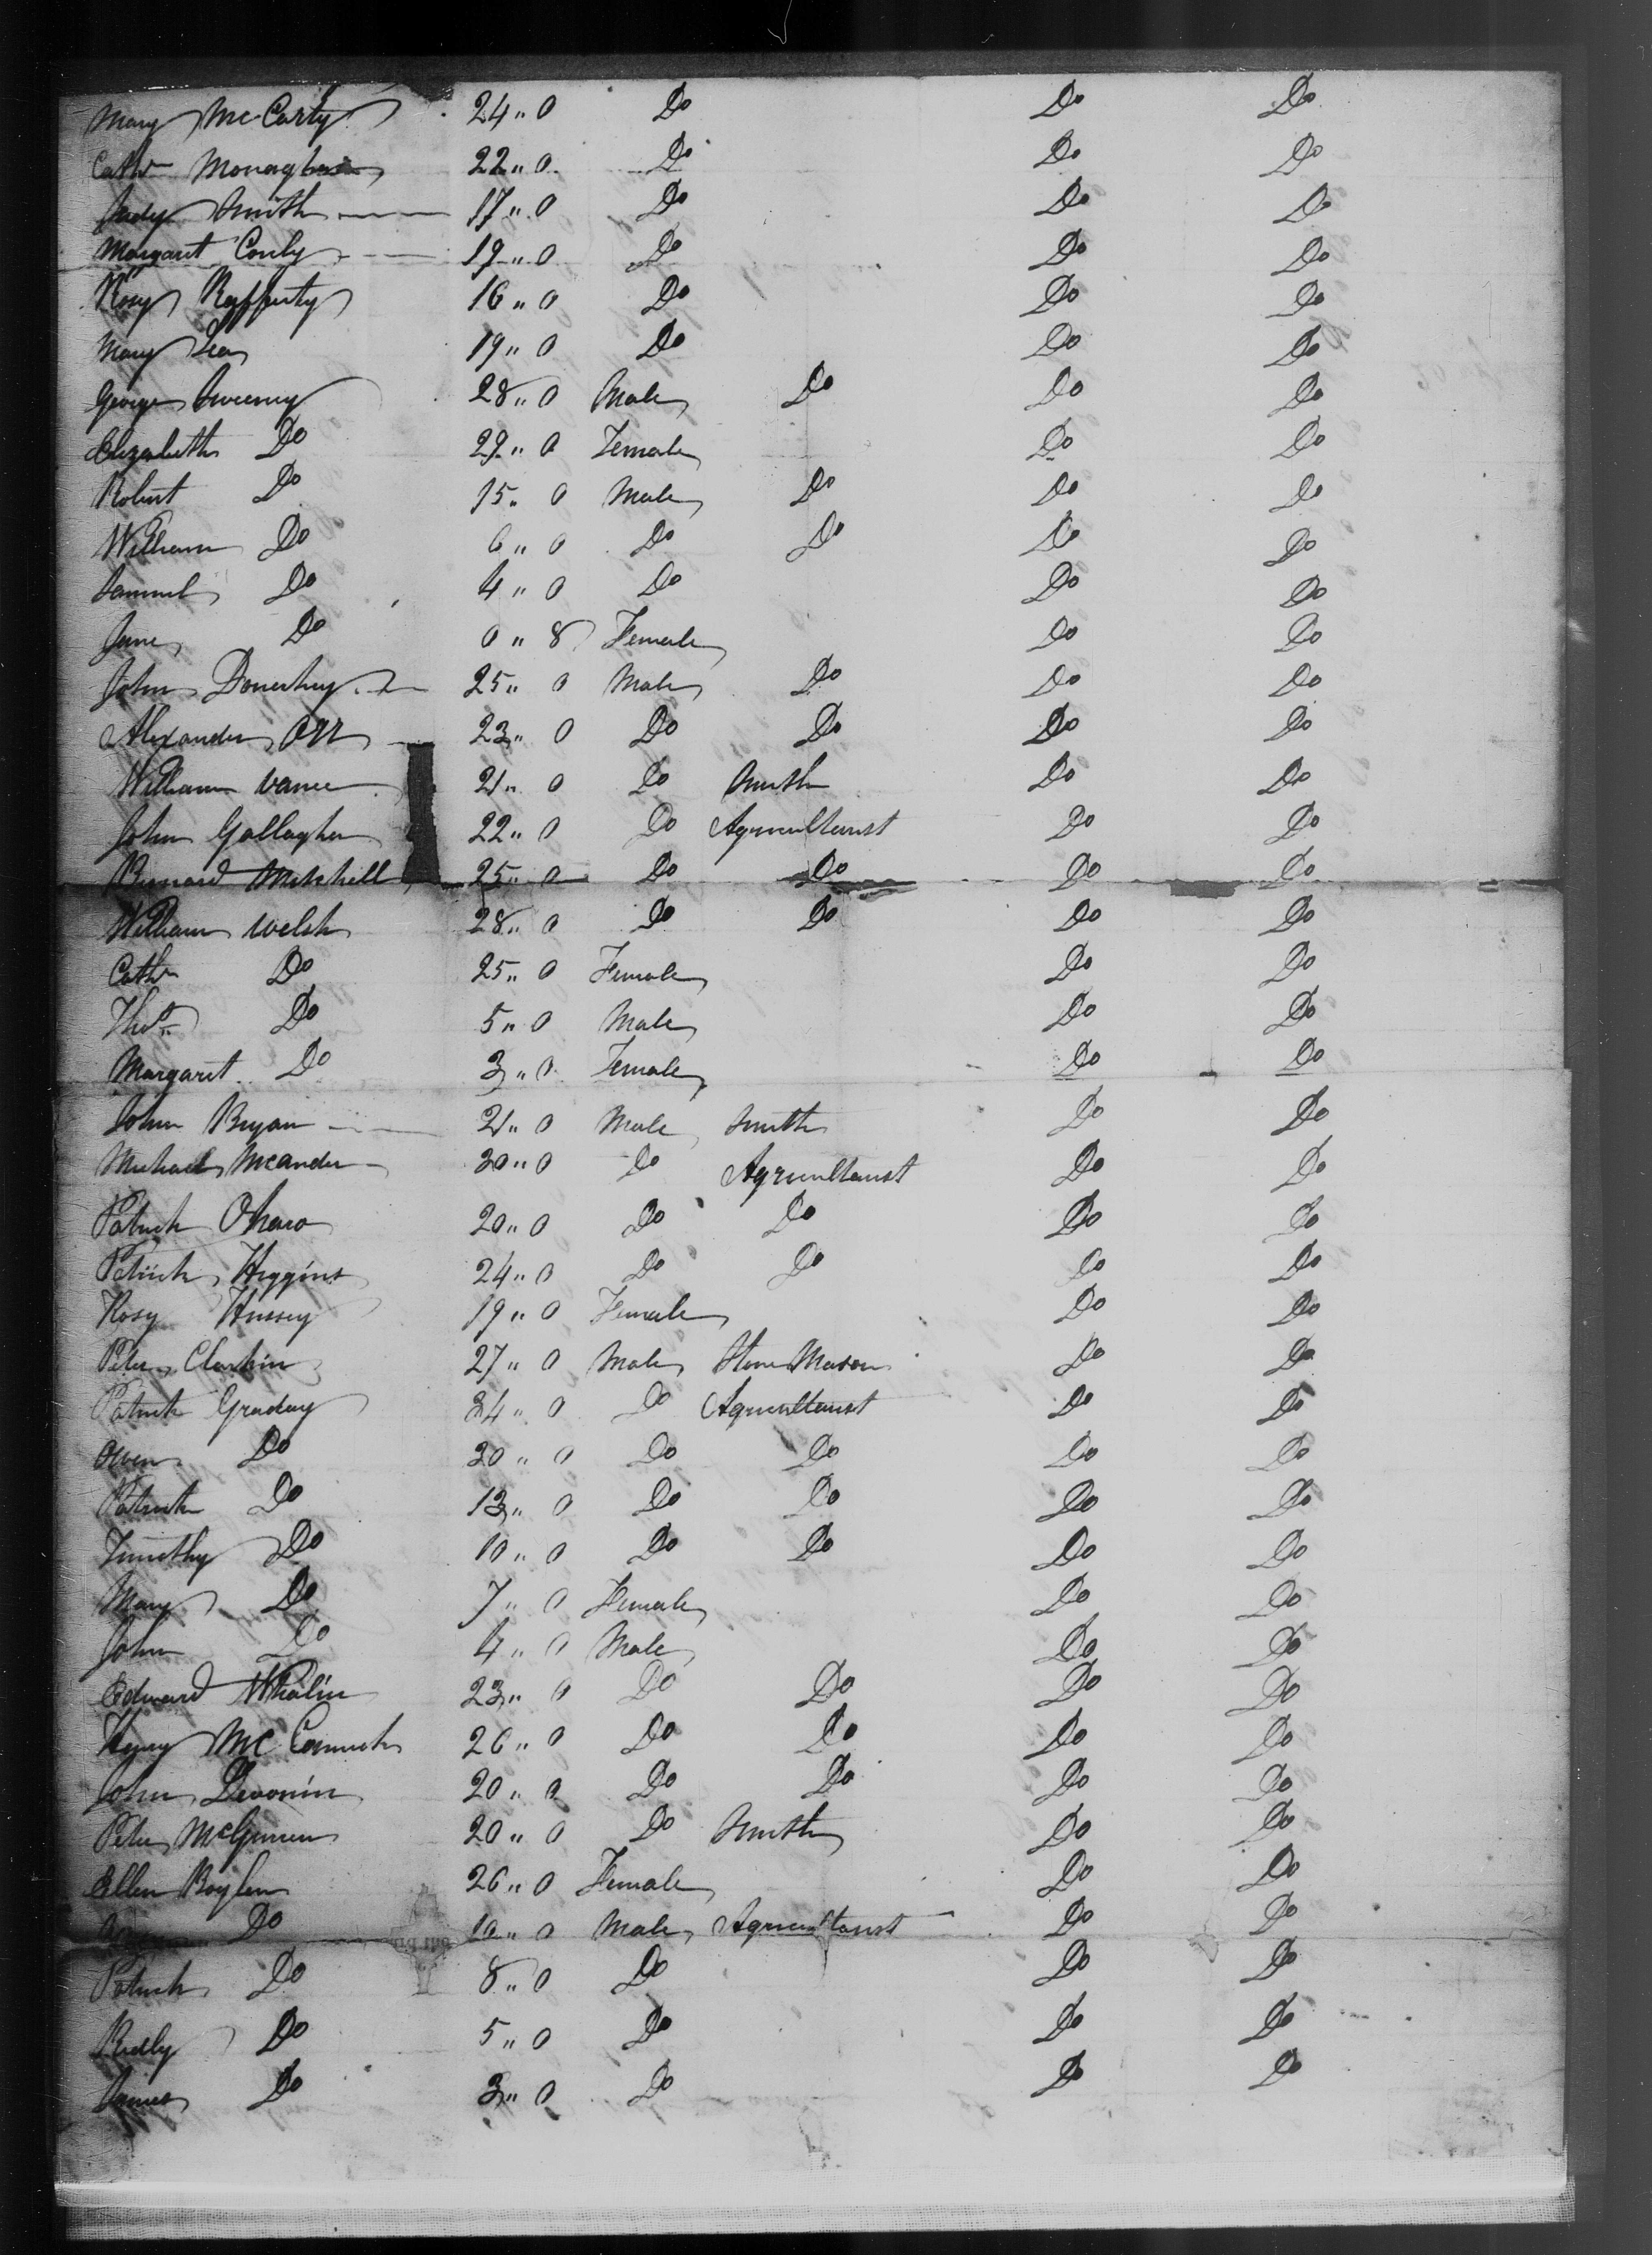 Mary McCarty 24 " 0 Do Do Do
Cathn Monaghan 22 " 0 Do Do Do
Judy Smith 17 " 0 Do Do Do
Margaret Conly 19 " 0 Do Do Do
Rosy Rafferty 16 " 0 Do Do Do
Mary 19 " 0 Do Do Do
George Sweeney 28 " 0 Male Do Do Do
Elizabeth Do 29 " 0 Female Do Do
Robert Do 15 " 0 Male Do Do Do
William Do 6 " 0 Do Do Do Do
Samuel Do 4 " 0 Do Do Do
Jane Do 0 " 8 Female Do Do
John Douehey 25 " 0 Male Do Do Do
Alexander Orr 23 " 0 Do Do Do Do
William Vance 21 " 0 Do Smith Do Do
John Gallagher 22 " 0 Do Agricultarist Do Do
Bernard Mitchell 25 " 0 Do Do Do Do
William Welsh 28 " 0 Do Do Do Do
Cathn Do 25 " 0 Female Do Do
Thos Do 5 " 0 Male Do Do
Margaret Do 3 " 0 Female Do Do
John Bryan 21 " 0 Male Smith Do Do
Michael Meander 30 " 0 Do Agricultarist Do Do
Patrick Oharo 20 " 0 Do Do Do Do
Patrick Higgins 24 " 0 Do Do Do Do
Rosy Hussey 19 " 0 Female Do Do
Peter Clarkin 27 " 0 Male Stone Mason Do Do
Patrick Graday 34 " 0 Do Agricultarist Do Do
Owen Do 30 " 0 Do Do Do Do
Patrick Do 13 " 0 Do Do Do Do
Timothy Do 10 " 0 Do Do Do Do
Mary Do 7 " 0 Female Do Do
John Do 4 " 0 Male Do Do
Edward Whalin 23 " 0 Do Do Do Do
Henry McCormick 26 " 0 Do Do Do Do
John Devonin 20 " 0 Do Do Do Do
Peter 20 " 0 Do Smith Do Do
Ellen Boylen 26 " 0 Female Do Do
Do 10 " 0 Male Agricultarist Do Do
Patrick Do 8 " 0 Do Do Do
Do 5 " 0 Do Do Do
James Do 3 " 0 Do Do Do